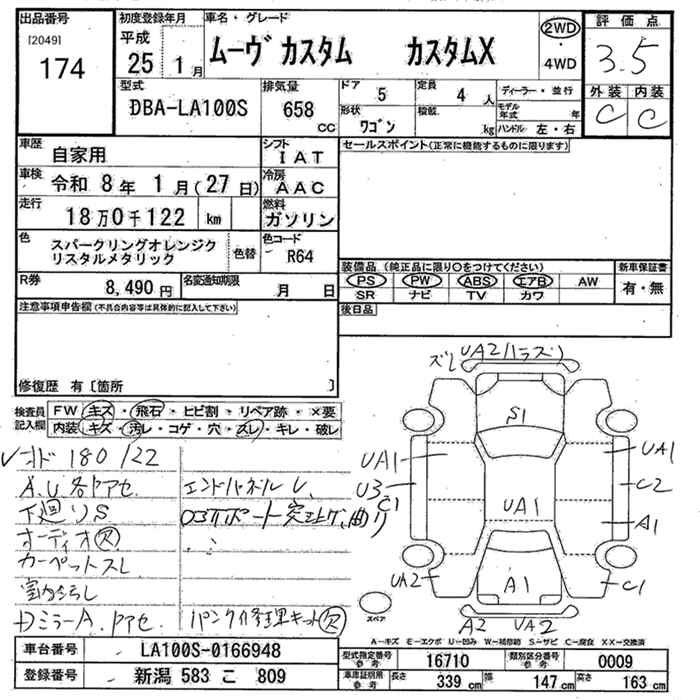 出品番号 初度登録年月 車名・グレード 評価点
[2049] 平成 ムーヴ カスタム カスタムX 2WD
174 25 1月 ・ 4WD 3.5
型式 排気量 ドア 5 定員 4 人 ディーラー・並行 外装 内装
DBA-LA100S 658 CC 形状 ワゴン 積載 kg モデル年式 年 C C
ハンドル 左・右
車歴 自家用 シフト IAT セールスポイント(正常に機能するものに限ります)
車検 令和 8年 1月(27日) 冷房 AAC
走行 18万0千122 km 燃料 ガソリン
色 スパークリングオレンジク 色替 色コード
リスタルメタリック R64
装備品(純正品に限り○をつけてください) 新車保証書
R券 8,490円 名変通知期限 月 日 PS PW ABS エアB AW 有・無
SR ナビ TV カワ
注意事項申告欄(不具合内容等は具体的に記入して下さい) 後日品
修復歴 有〔箇所 〕
検査員 FW キズ・飛石・ヒビ割・リペア跡・×要
記入欄 内装 キズ・汚レ・コゲ・穴・スレ・キレ・破レ
ズレ UA2(ハラズ)
S1
180122
UA1 UA1
A.U.各ヤアセ エンドパネルU、
U3 C1 C2
下廻りS
UA1 A1
オーディオ欠
カーペットスレ
室内ヨゴレ
UA2 A1 C1
DミラーA、ヤアセ パンク修理キット欠
スペア
A2 UA2
A-キズ E-エクボ U-凹み W-補修跡 S-サビ C-腐食 XX-交換済
車台番号 LA100S-0166948 型式指定番号 参考 16710 類別区分番号 参考 0009
登録番号 新潟 583 こ 809 車庫証明用 参考 長さ 339 cm 幅 147 cm 高さ 163 cm